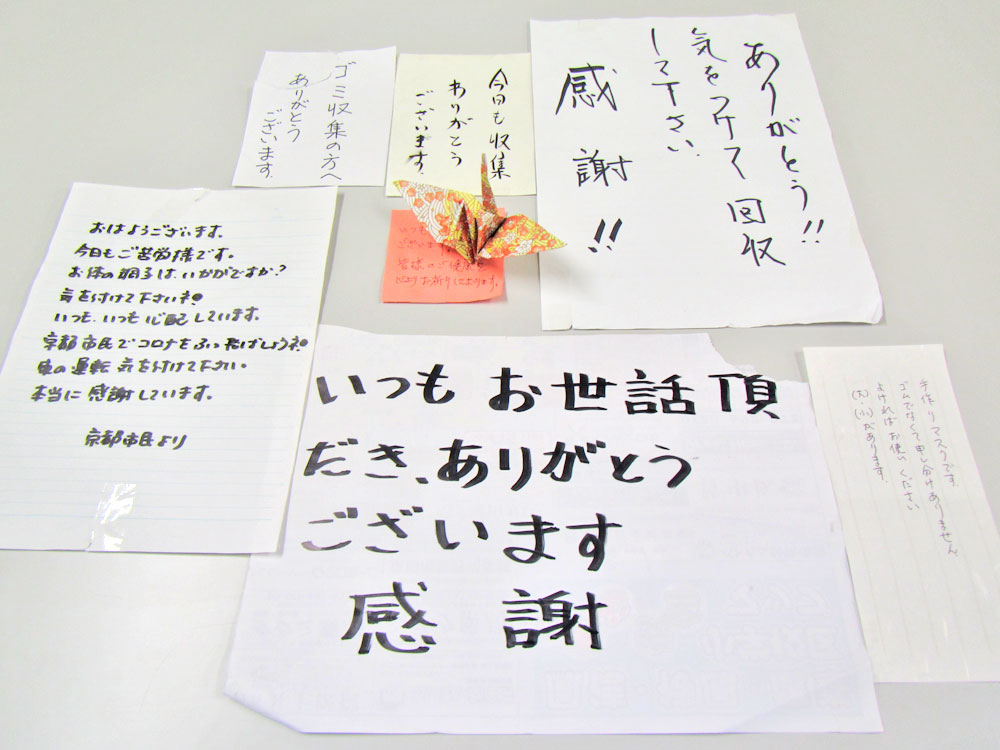 ゴミ収集の方へ
ありがとう
ございます。
今日も収集
ありがとう
ございます。
ありがとう!!
気をつけて回収
して下さい。
感謝!!
おはようございます。
今日もご苦労様です。
お体の調子は、いかがですか?
気を付けて下さいネ。
いつも、いつも心配しています。
京都市民でコロナをふっ飛ばしょうネ。
車の運転気を付けて下さい。
本当に感謝しています。
京都市民より
いつも
ございます
皆様のご健康を
心よりお祈りしております。
いつもお世話頂
だき、ありがとう
ございます
感謝
手作りマスクです。
ゴムでなくて申し分けありません。
よければお使いください
(大)(小)があります。